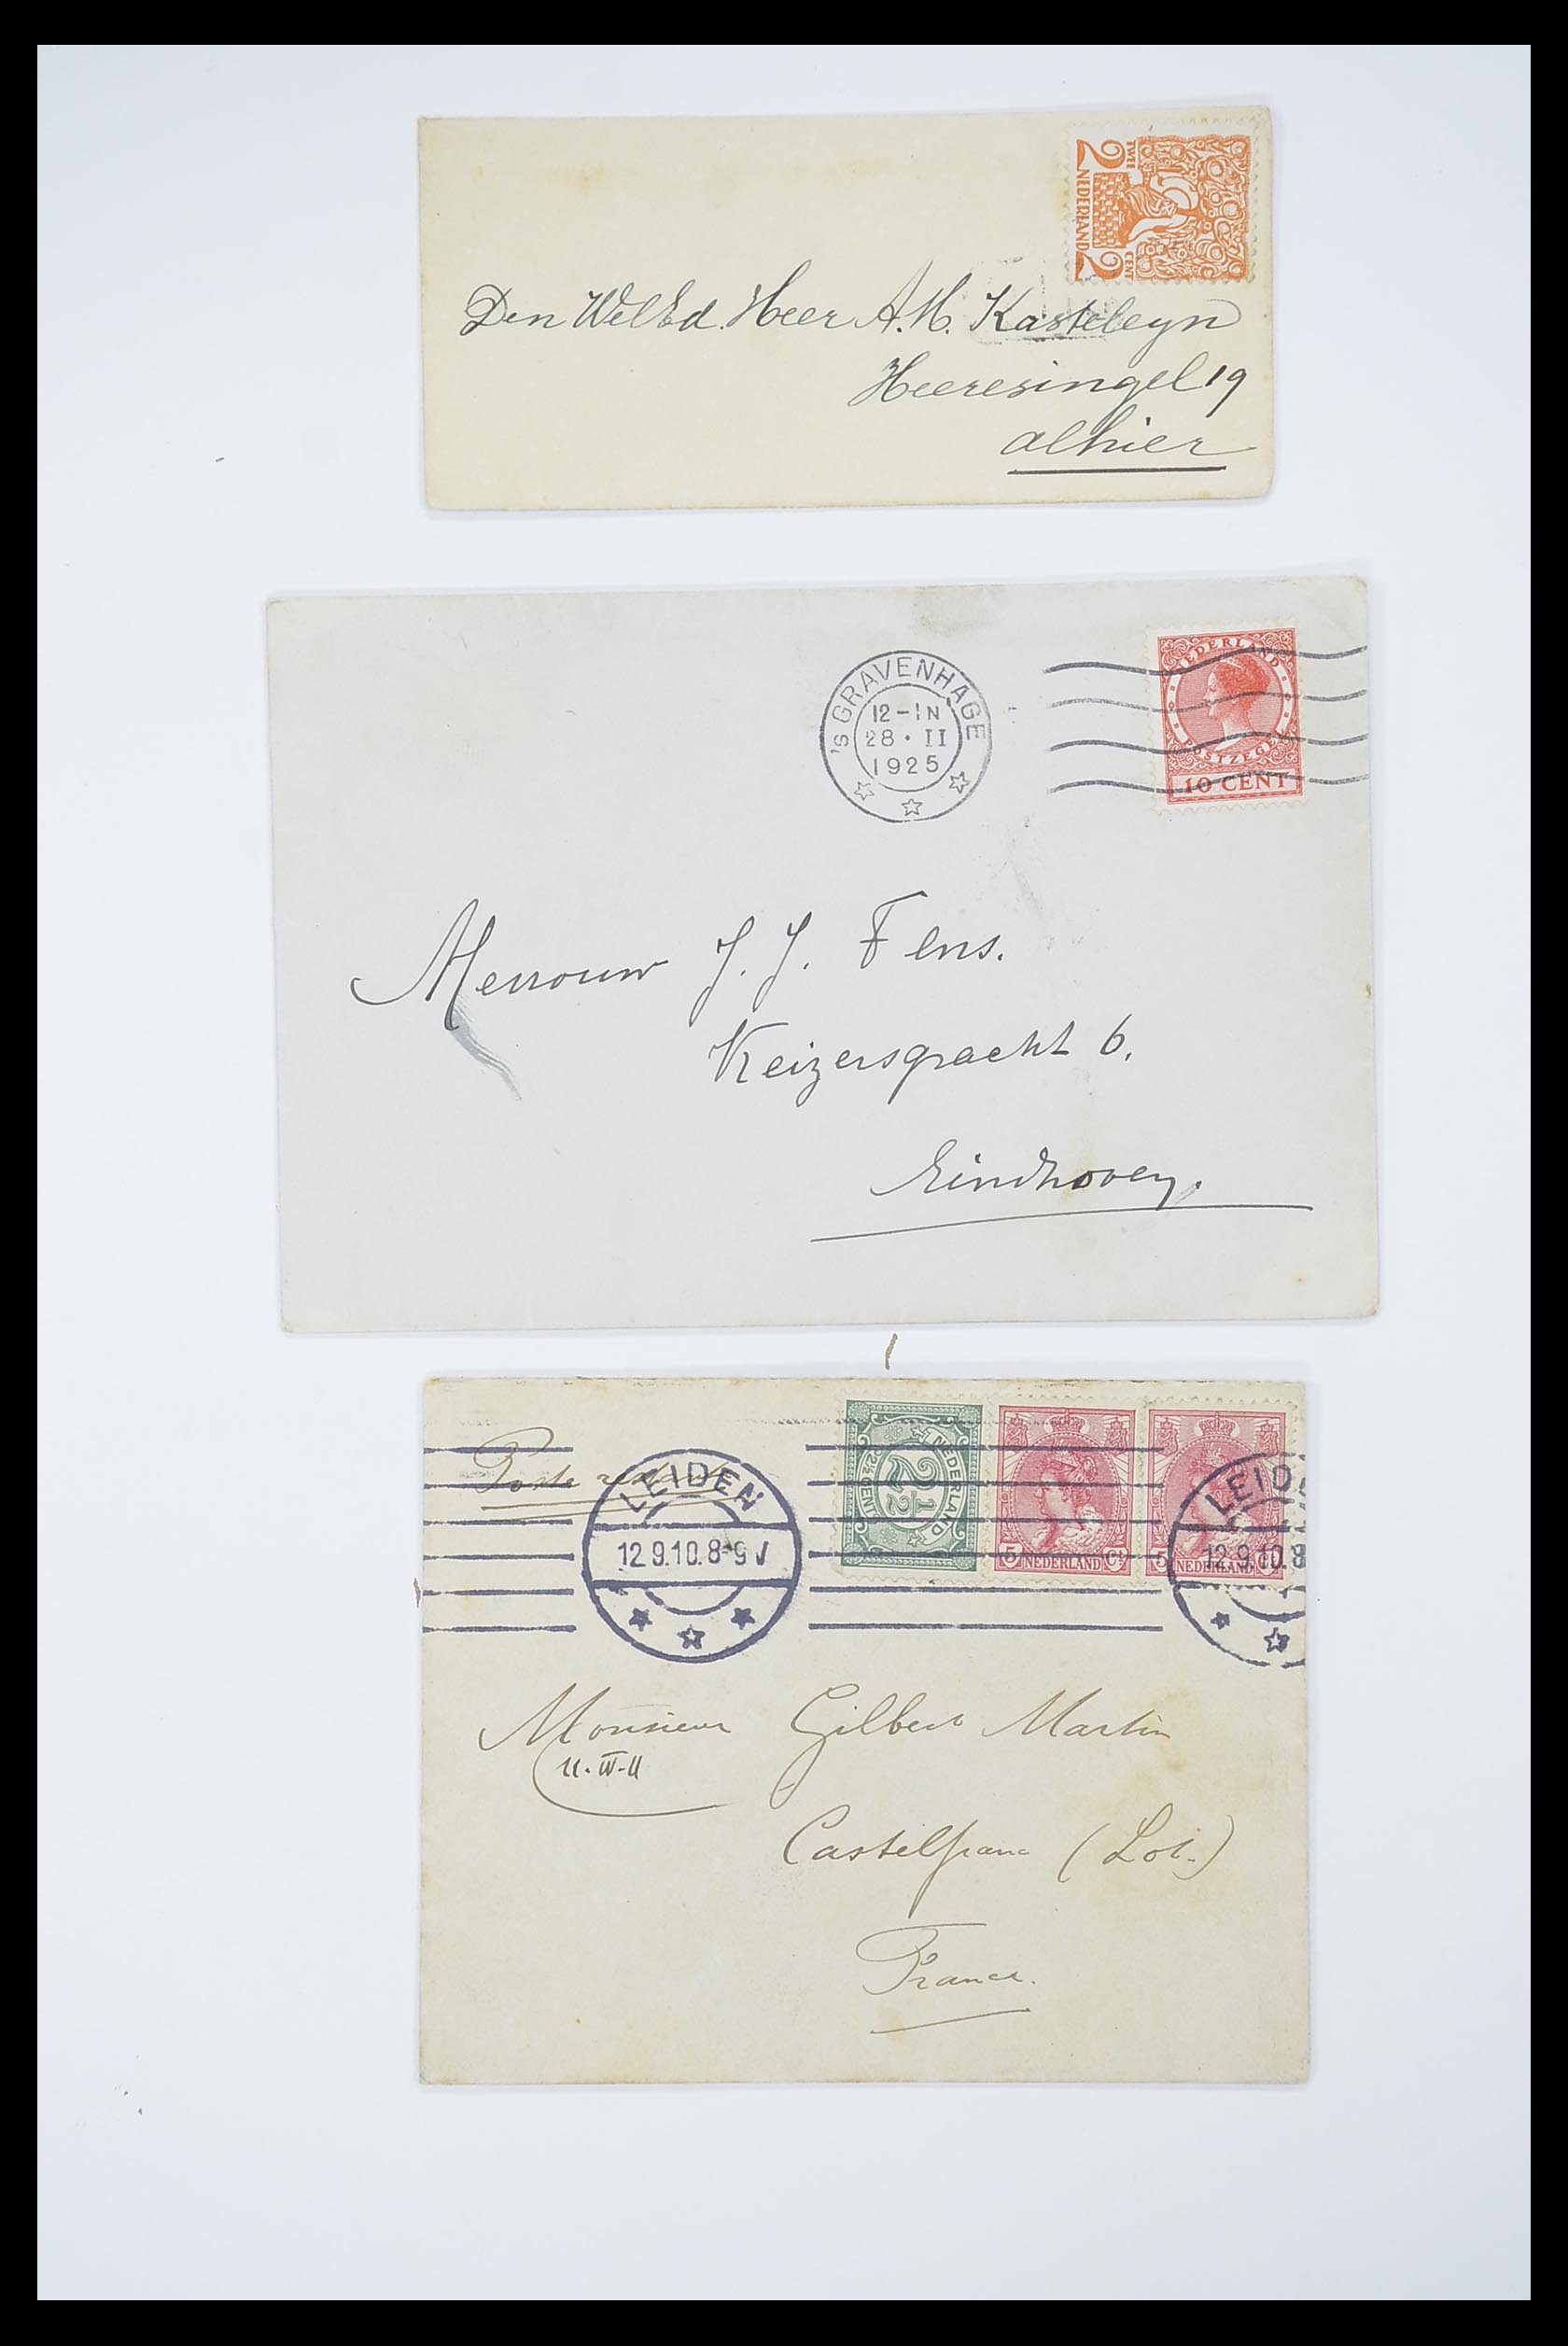 TWEE CENT
2 NEDERLAND 2
Den WelEd. Heer A.M. Kasteleyn
Heeresingel 19
alhier
'S GRAVENHAGE
12-1N
28·II
1925
NEDERLAND
POSTZEGEL
10 CENT
Mevrouw J. J. Fens.
Keizersgracht 6.
Eindhoven.
Poste
LEIDEN
12.9.10.8-9V
NEDERLAND
2½
2½ CENT
5 NEDERLAND Ct
5 NEDERLAND Ct
LEID
12.9.10.8
Monsieur Gilbert Martin
11·IV-11
Castelfranc (Lot.)
France.